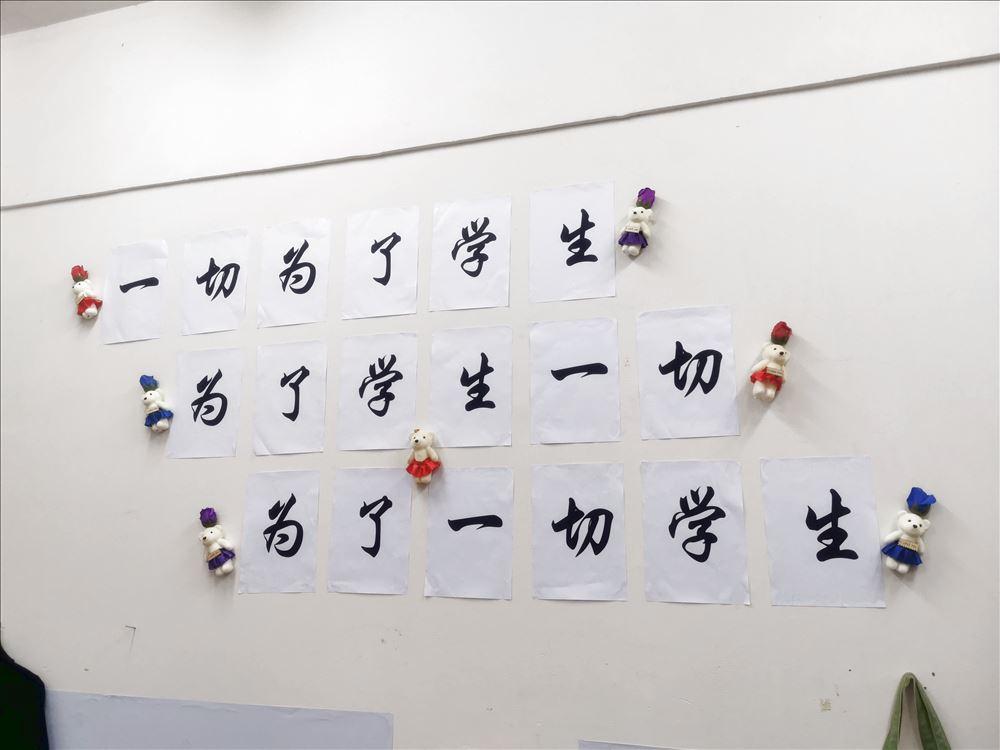 一切为了学生
为了学生一切
为了一切学生